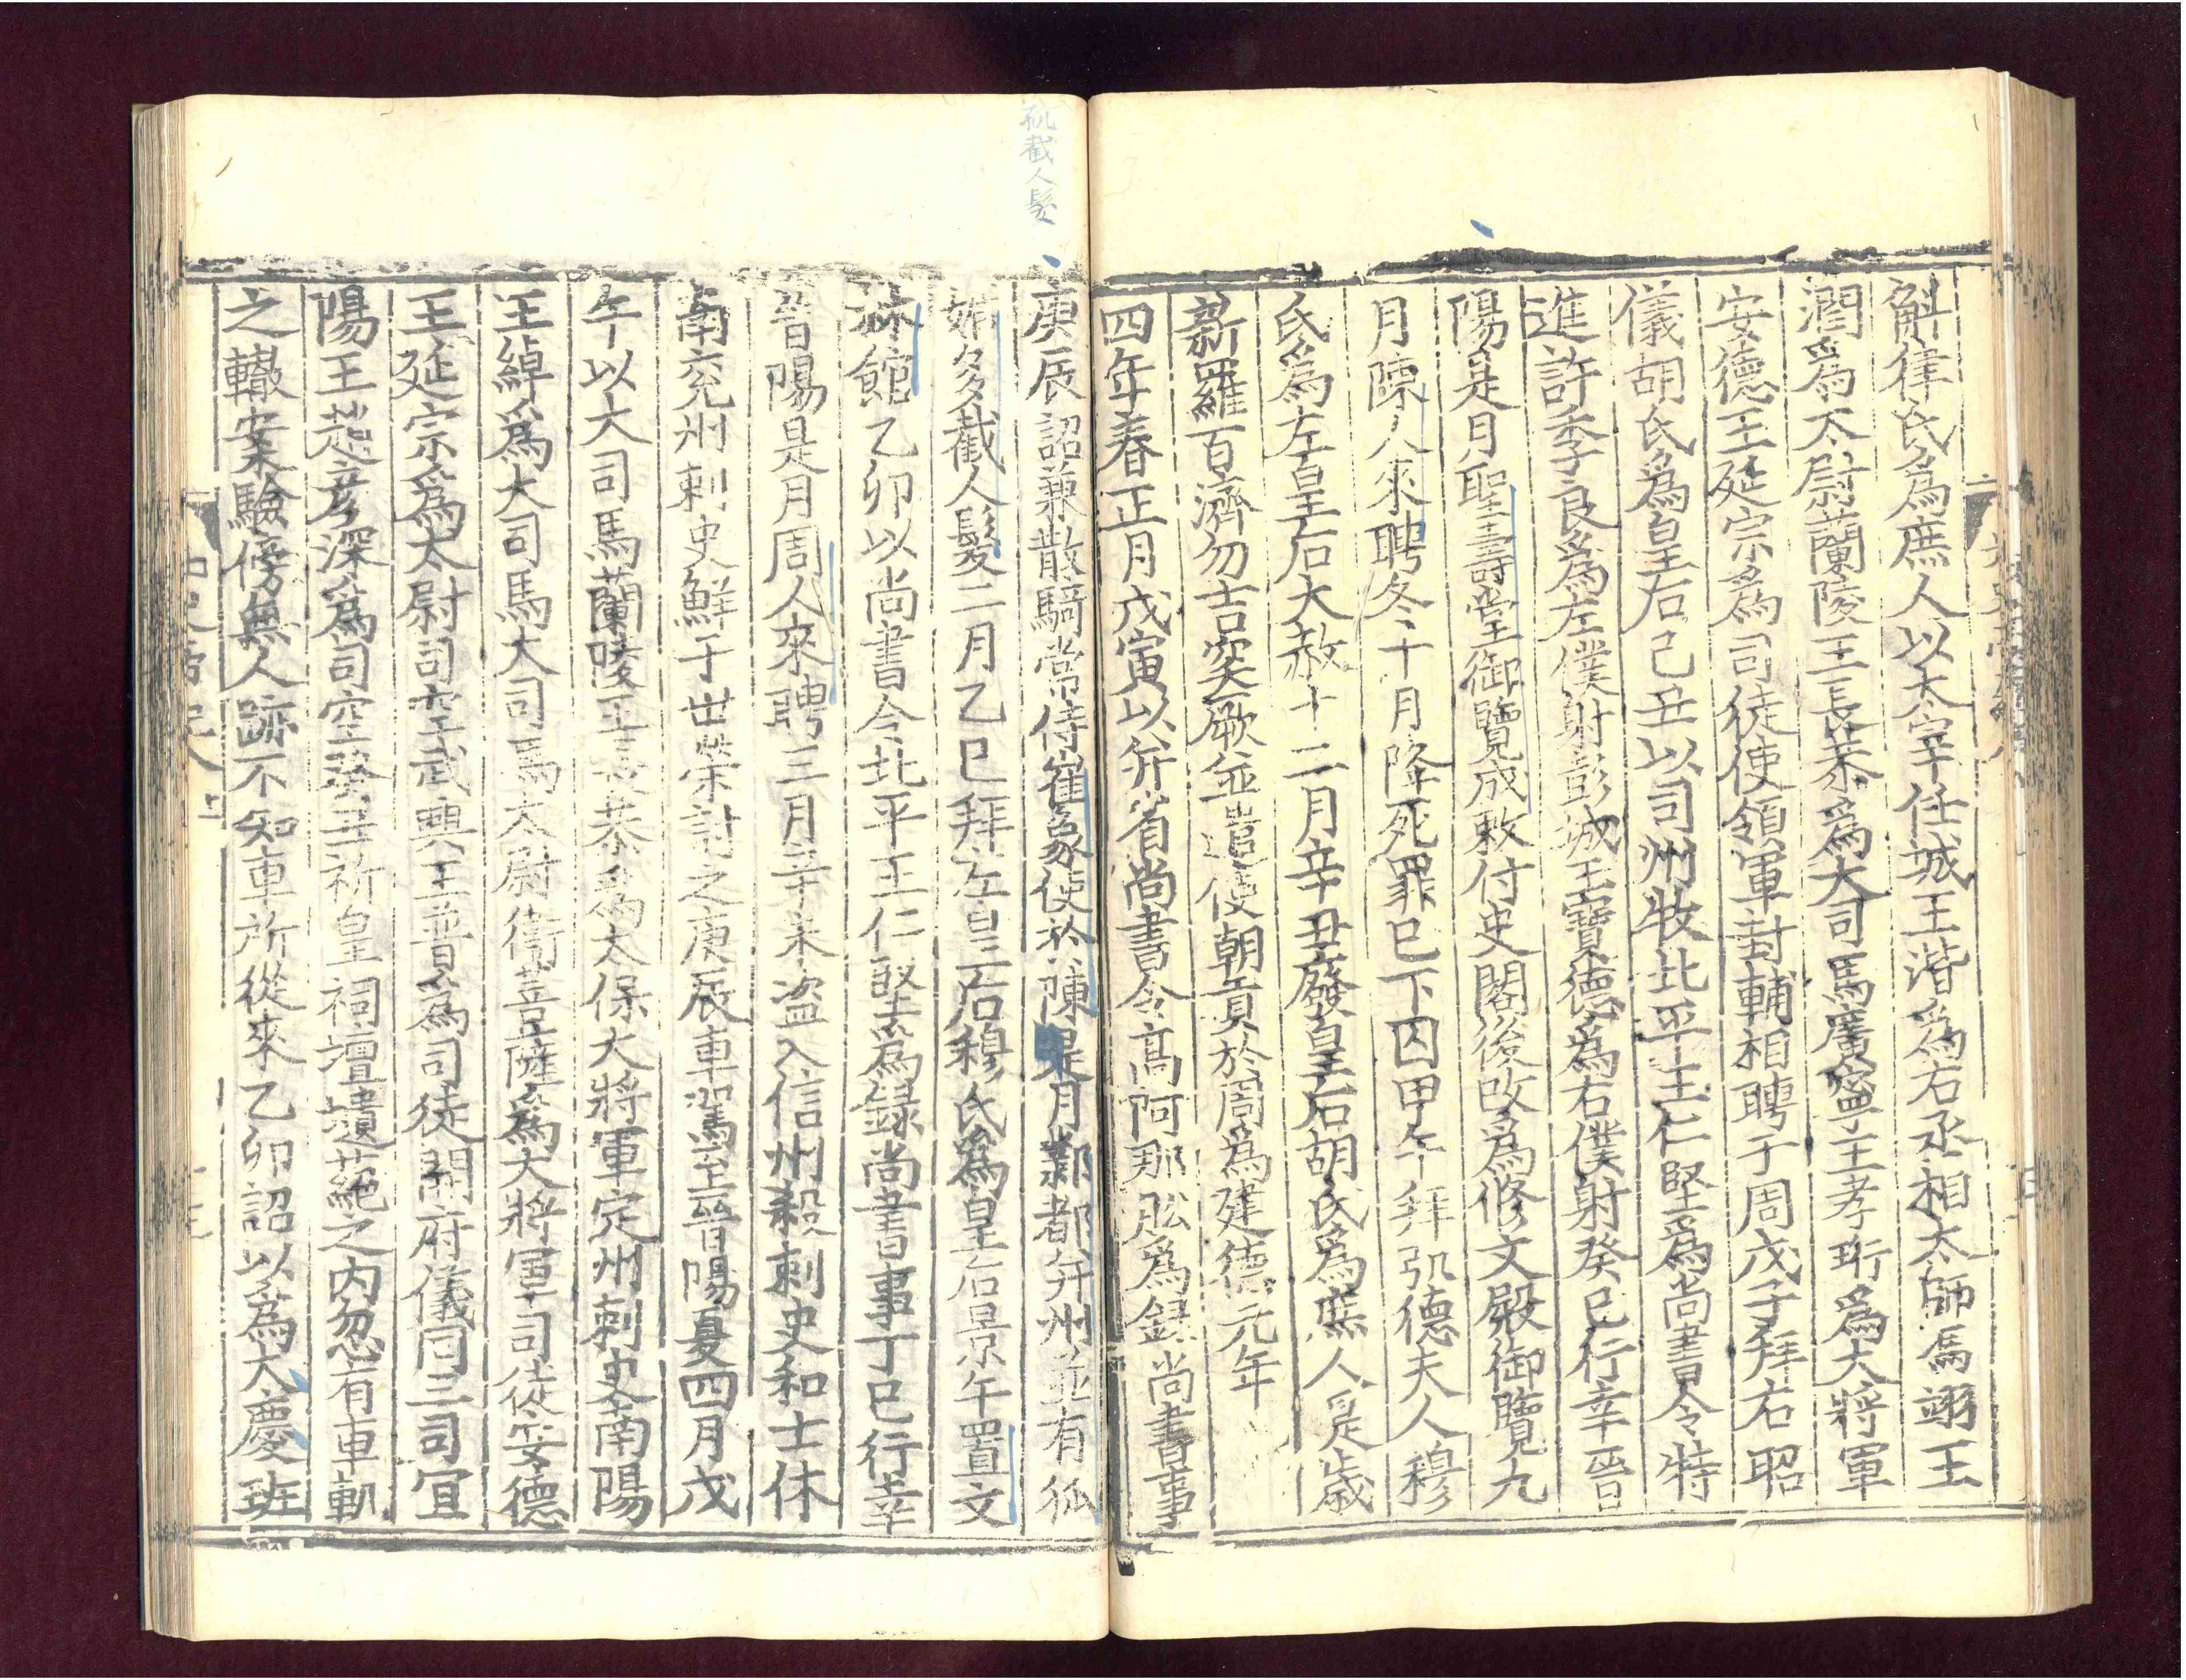 斛律氏爲庶人以太宰任城王湝爲右丞相太師馮翊王
潤爲太尉蘭陵王長恭爲大司馬廣寧王孝珩爲大將軍
安德王延宗爲司徒使領軍封輔相聘于周戊子拜右昭
儀胡氏爲皇后己丑以司州牧北平王仁堅爲尚書令特
進許季良爲左僕射彭城王寶德爲右僕射癸巳行幸晉
陽是月聖壽堂御覽成敕付史閣後改爲修文殿御覽九
月陳人來聘冬十月降死罪已下囚甲午拜弘德夫人穆
氏爲左皇后大赦十二月辛丑廢皇后胡氏爲庶人是歲
新羅百濟勿吉突厥並遣使朝貢於周爲建德元年
四年春正月戊寅以并省尚書令高阿那肱爲録尚書事
庚辰詔兼散騎常侍崔象使於陳是月鄴都并州並有狐
媚多截人髮二月乙巳拜左皇后穆氏爲皇后景午置文
林館乙卯以尚書令北平王仁堅爲録尚書事丁巳行幸
晉陽是月周人來聘三月辛未盗入信州殺刺史和士休
南兖州刺史鮮于世榮討之庚辰車駕至晉陽夏四月戊
午以大司馬蘭陵王長恭爲太保大將軍定州刺史南陽
王綽爲大司馬大司馬太尉衛菩薩爲大將軍司徒安德
王延宗爲太尉司空武興王普爲司徒開府儀同三司宜
陽王趙彦深爲司空癸丑祈皇祠壇壝蕝之内忽有車軌
之轍案驗傍無人跡不知車所從來乙卯詔以爲大慶班
狐截人髮